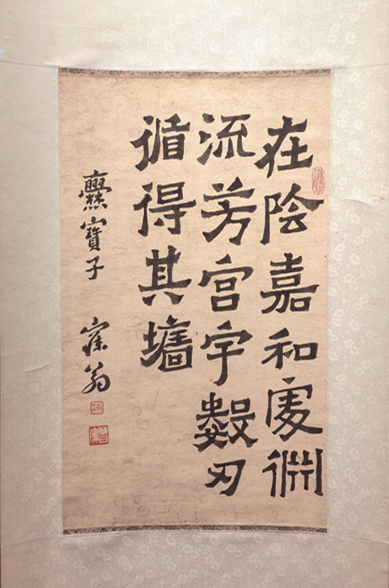 在陰嘉和處淵
流芳宮宇數刃
循得其墻
爨寶子 寐翁